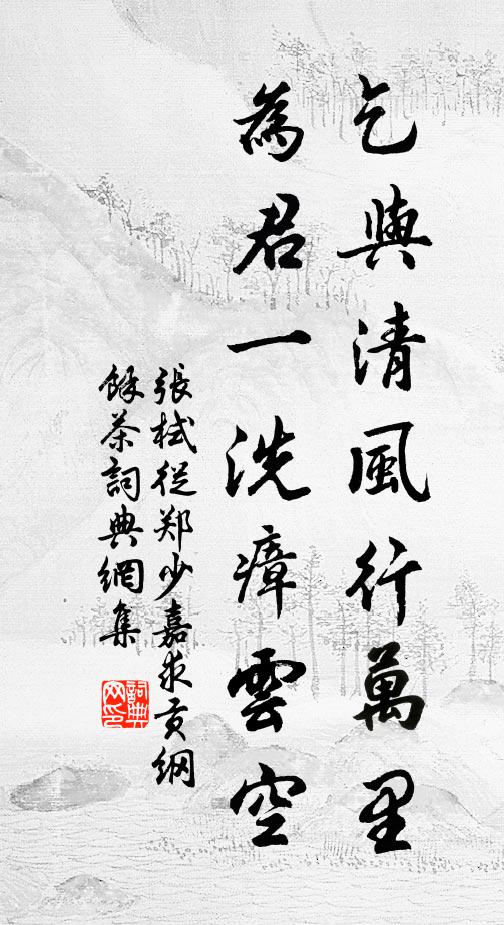 乞與清風行萬里
為君一洗瘴雲空
張栻從郑少嘉求贡纲
餘茶詞典網集
詞典
网印